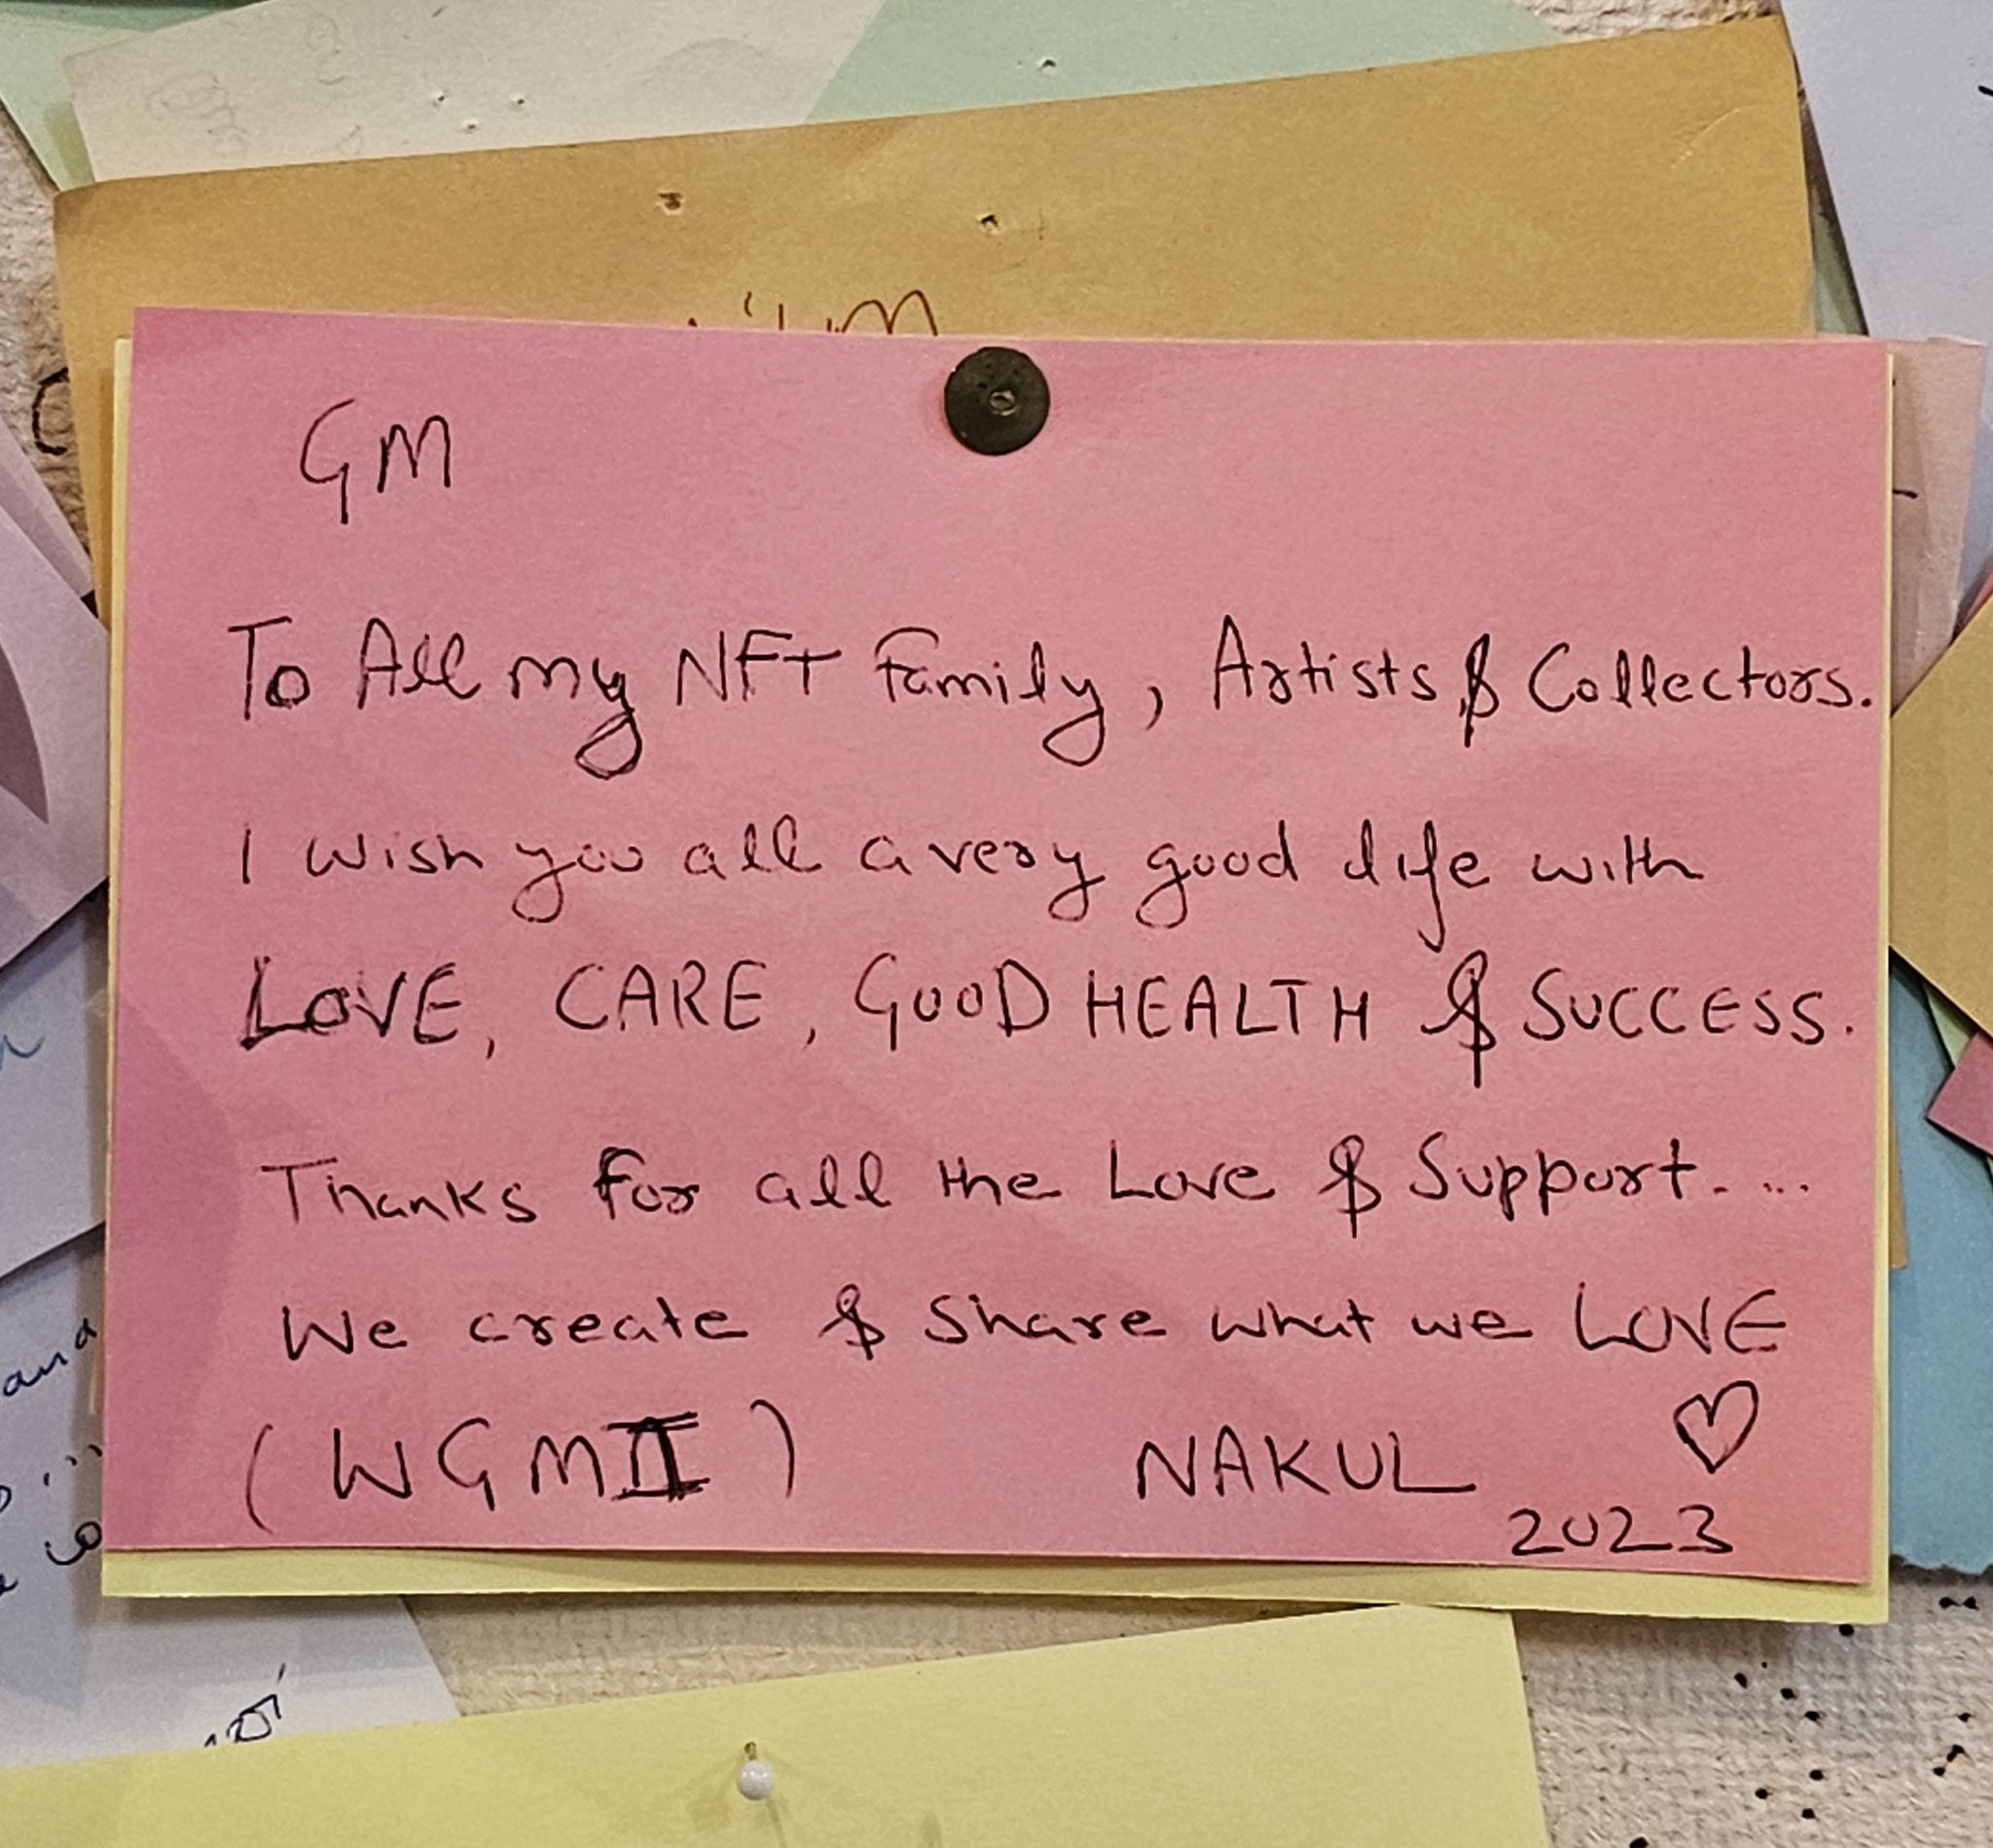 GM
To All my NFT Family, Artists & Collectors.
I wish you all a very good life with
LOVE, CARE, GOOD HEALTH & SUCCESS.
Thanks for all the Love & Support....
We create & Share what we LOVE
(WGMII) NAKUL
2023
and